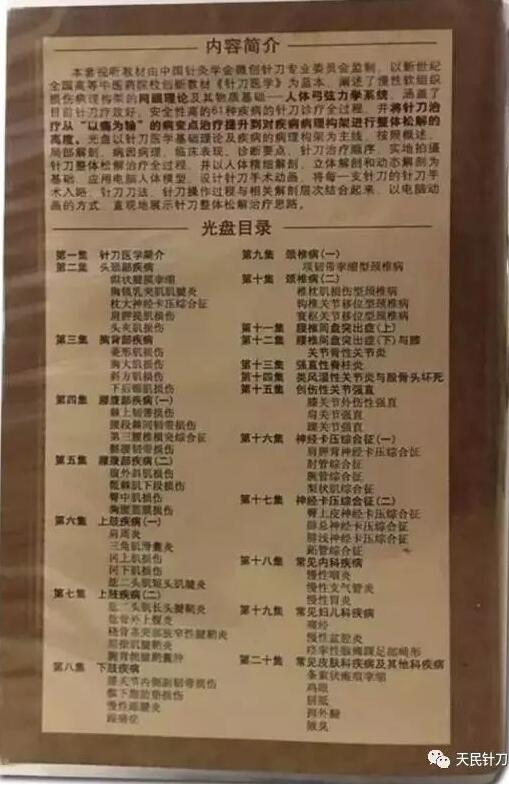 内容简介
本套视听教材由中国针灸学会微创针刀专业委员会监制，以新世纪
全国高等中医药院校创新教材《针刀医学》为蓝本，阐述了慢性软组织
损伤病理构架的网眼理论及其物质基础——人体弓弦力学系统，涵盖了
目前针刀疗效好、安全性高的61种疾病的针刀诊疗全过程，并将针刀治
疗从“以痛为输”的病变点治疗提升到对疾病病理构架进行整体松解的
高度。光盘以针刀医学基础理论及疾病的病理构架为主线，按照概述、
局部解剖、病因病理、临床表现、诊断要点、针刀治疗顺序，实地拍摄
针刀整体松解治疗全过程，并以人体精细解剖、立体解剖和动态解剖为
基础，应用电脑人体模型，设计针刀手术动画，将每一支针刀的针刀手
术入路、针刀刀法、针刀操作过程与相关解剖层次结合起来，以电脑动
画的方式，直观地展示针刀整体松解治疗思路。
光盘目录
第一集 针刀医学简介
第二集 头颈部疾病
帽状腱膜挛缩
胸锁乳突肌肌腱炎
枕大神经卡压综合征
肩胛提肌损伤
头夹肌损伤
第三集 胸背部疾病
菱形肌损伤
胸大肌损伤
斜方肌损伤
下后锯肌损伤
第四集 腰腹部疾病(一)
棘上韧带损伤
腰段棘间韧带损伤
第三腰椎横突综合征
髂腰韧带损伤
第五集 腰腹部疾病(二)
腹外斜肌损伤
骶棘肌下段损伤
臀中肌损伤
胸腰筋膜损伤
第六集 上肢疾病(一)
肩周炎
三角肌滑囊炎
冈上肌损伤
冈下肌损伤
肱二头肌短头肌腱炎
第七集 上肢疾病(二)
肱二头肌长头腱鞘炎
肱骨外上髁炎
桡骨茎突部狭窄性腱鞘炎
屈指肌腱鞘炎
腕背侧腱鞘囊肿
第八集 下肢疾病
膝关节内侧副韧带损伤
髌下脂肪垫损伤
慢性跟腱炎
跟痛症
第九集 颈椎病(一)
项韧带挛缩型颈椎病
第十集 颈椎病(二)
椎枕肌损伤型颈椎病
钩椎关节移位型颈椎病
寰枢关节移位型颈椎病
第十一集 腰椎间盘突出症(上)
第十二集 腰椎间盘突出症(下)与膝
关节骨性关节炎
第十三集 强直性脊柱炎
第十四集 类风湿性关节炎与股骨头坏死
第十五集 创伤性关节强直
膝关节外伤性强直
肩关节强直
踝关节强直
第十六集 神经卡压综合征(一)
肩胛背神经卡压综合征
肘管综合征
腕管综合征
梨状肌综合征
第十七集 神经卡压综合征(二)
臀上皮神经卡压综合征
腓总神经卡压综合征
腓浅神经卡压综合征
跖管综合征
第十八集 常见内科疾病
慢性咽炎
慢性支气管炎
慢性胃炎
第十九集 常见妇儿科疾病
痛经
慢性盆腔炎
痉挛性脑瘫踝足部畸形
第二十集 常见皮肤科疾病及其他科疾病
条索状瘢痕挛缩
鸡眼
胼胝
拇外翻
腋臭
天民针刀